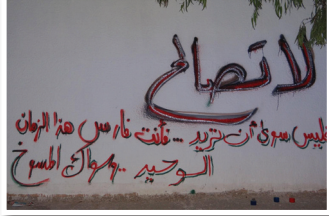 لا تصالح
فليس سوى أن تريد ... فأنت فارس هذا الزمان
الوحيد .. وسواك المسوخ